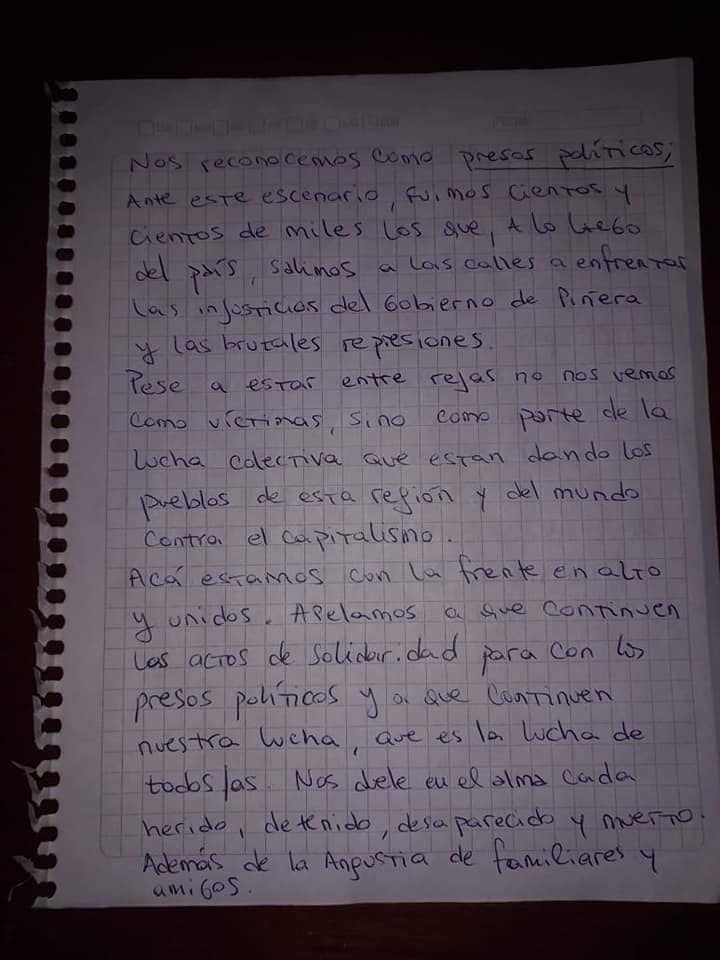 Nos reconocemos como presos políticos;
Ante este escenario, fuimos cientos y
cientos de miles los que, A lo largo
del país, salimos a las calles a enfrentar
las injusticias del Gobierno de Piñera
y las brutales represiones.
Pese a estar entre rejas no nos vemos
como víctimas, sino como parte de la
lucha colectiva que estan dando los
pueblos de esta región y del mundo
contra el capitalismo.
Acá estamos con la frente en alto
y unidos. Apelamos a que continuen
los actos de solidaridad para con los
presos políticos y a que continuen
nuestra lucha, que es la lucha de
todos/as. Nos duele en el alma cada
herido, detenido, desaparecido y muerto.
Además de la Angustia de familiares y
amigos.